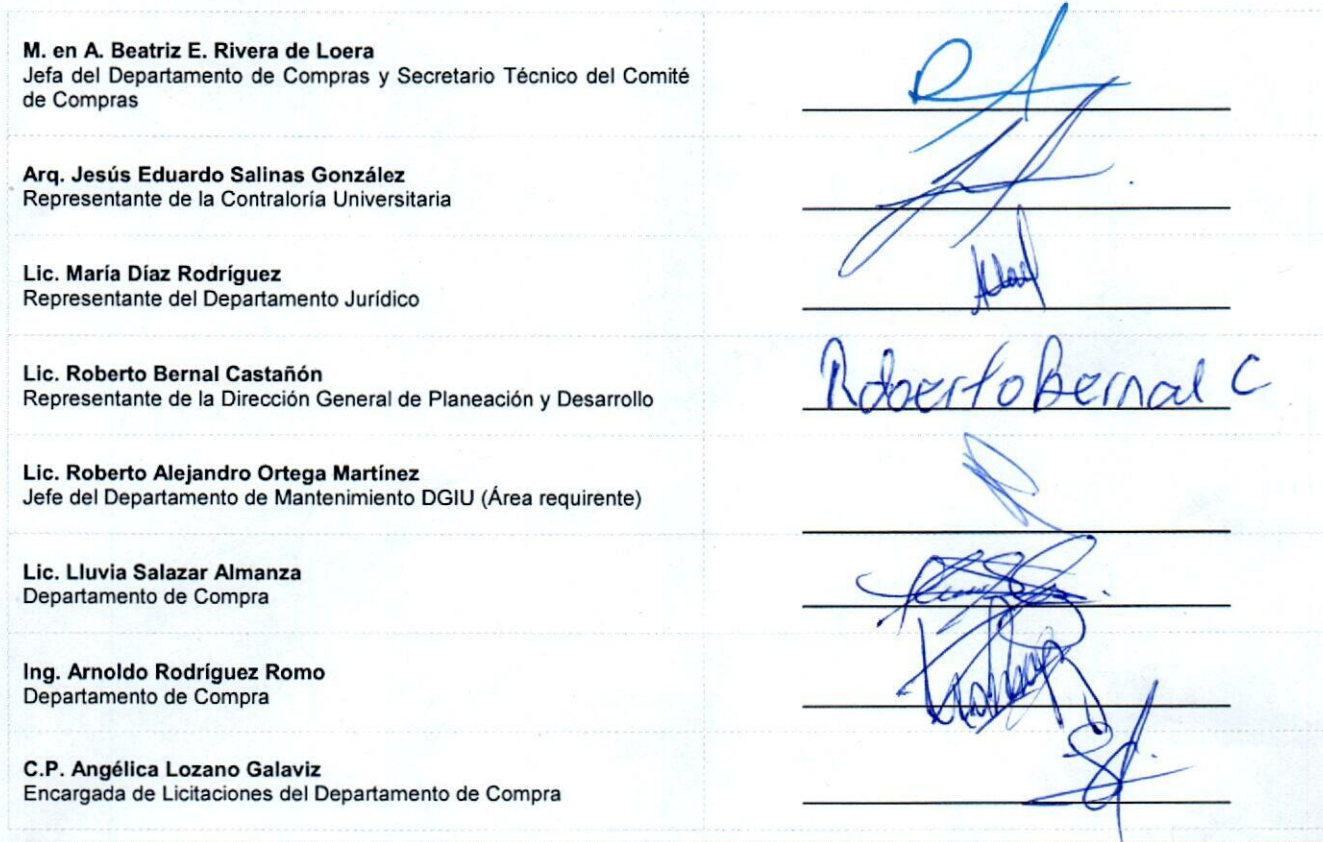 M. en A. Beatriz E. Rivera de Loera
Jefa del Departamento de Compras y Secretario Técnico del Comité
de Compras
Arq. Jesús Eduardo Salinas González
Representante de la Contraloría Universitaria
Lic. María Díaz Rodríguez
Representante del Departamento Jurídico
Lic. Roberto Bernal Castañón
Representante de la Dirección General de Planeación y Desarrollo
Roberto Bernal C
Lic. Roberto Alejandro Ortega Martínez
Jefe del Departamento de Mantenimiento DGIU (Área requirente)
Lic. Lluvia Salazar Almanza
Departamento de Compra
Ing. Arnoldo Rodríguez Romo
Departamento de Compra
C.P. Angélica Lozano Galaviz
Encargada de Licitaciones del Departamento de Compra